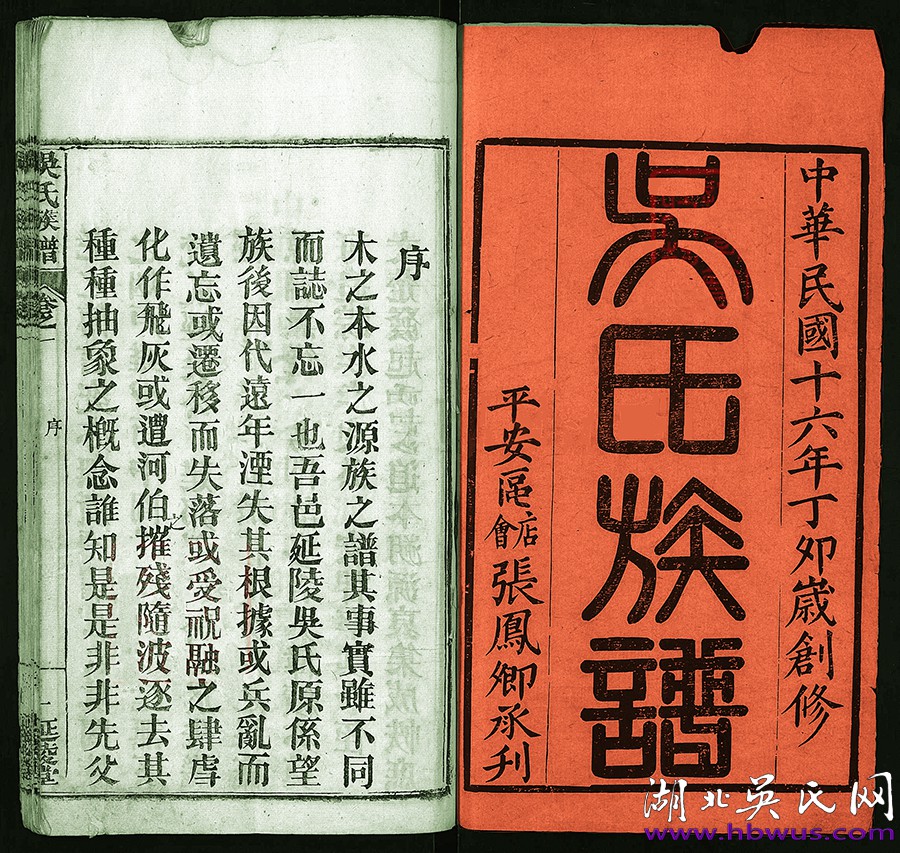 中華民國十六年丁卯歲創修
吳氏族譜
平安區店會張鳳卿承刊
序
木之本水之源族之譜其事實雖不同
而誌不忘一也吾邑延陵吳氏原係望
族後因代遠年湮失其根據或兵亂而
遺忘或遷移而失落或受祝融之肆虐
化作飛灰或遭河伯之摧殘隨波逐去其
種種抽象之概念誰知是是非非先父
吳氏族譜
卷一
序
一
延陵堂
湖北吳氏网
www.hbwus.com